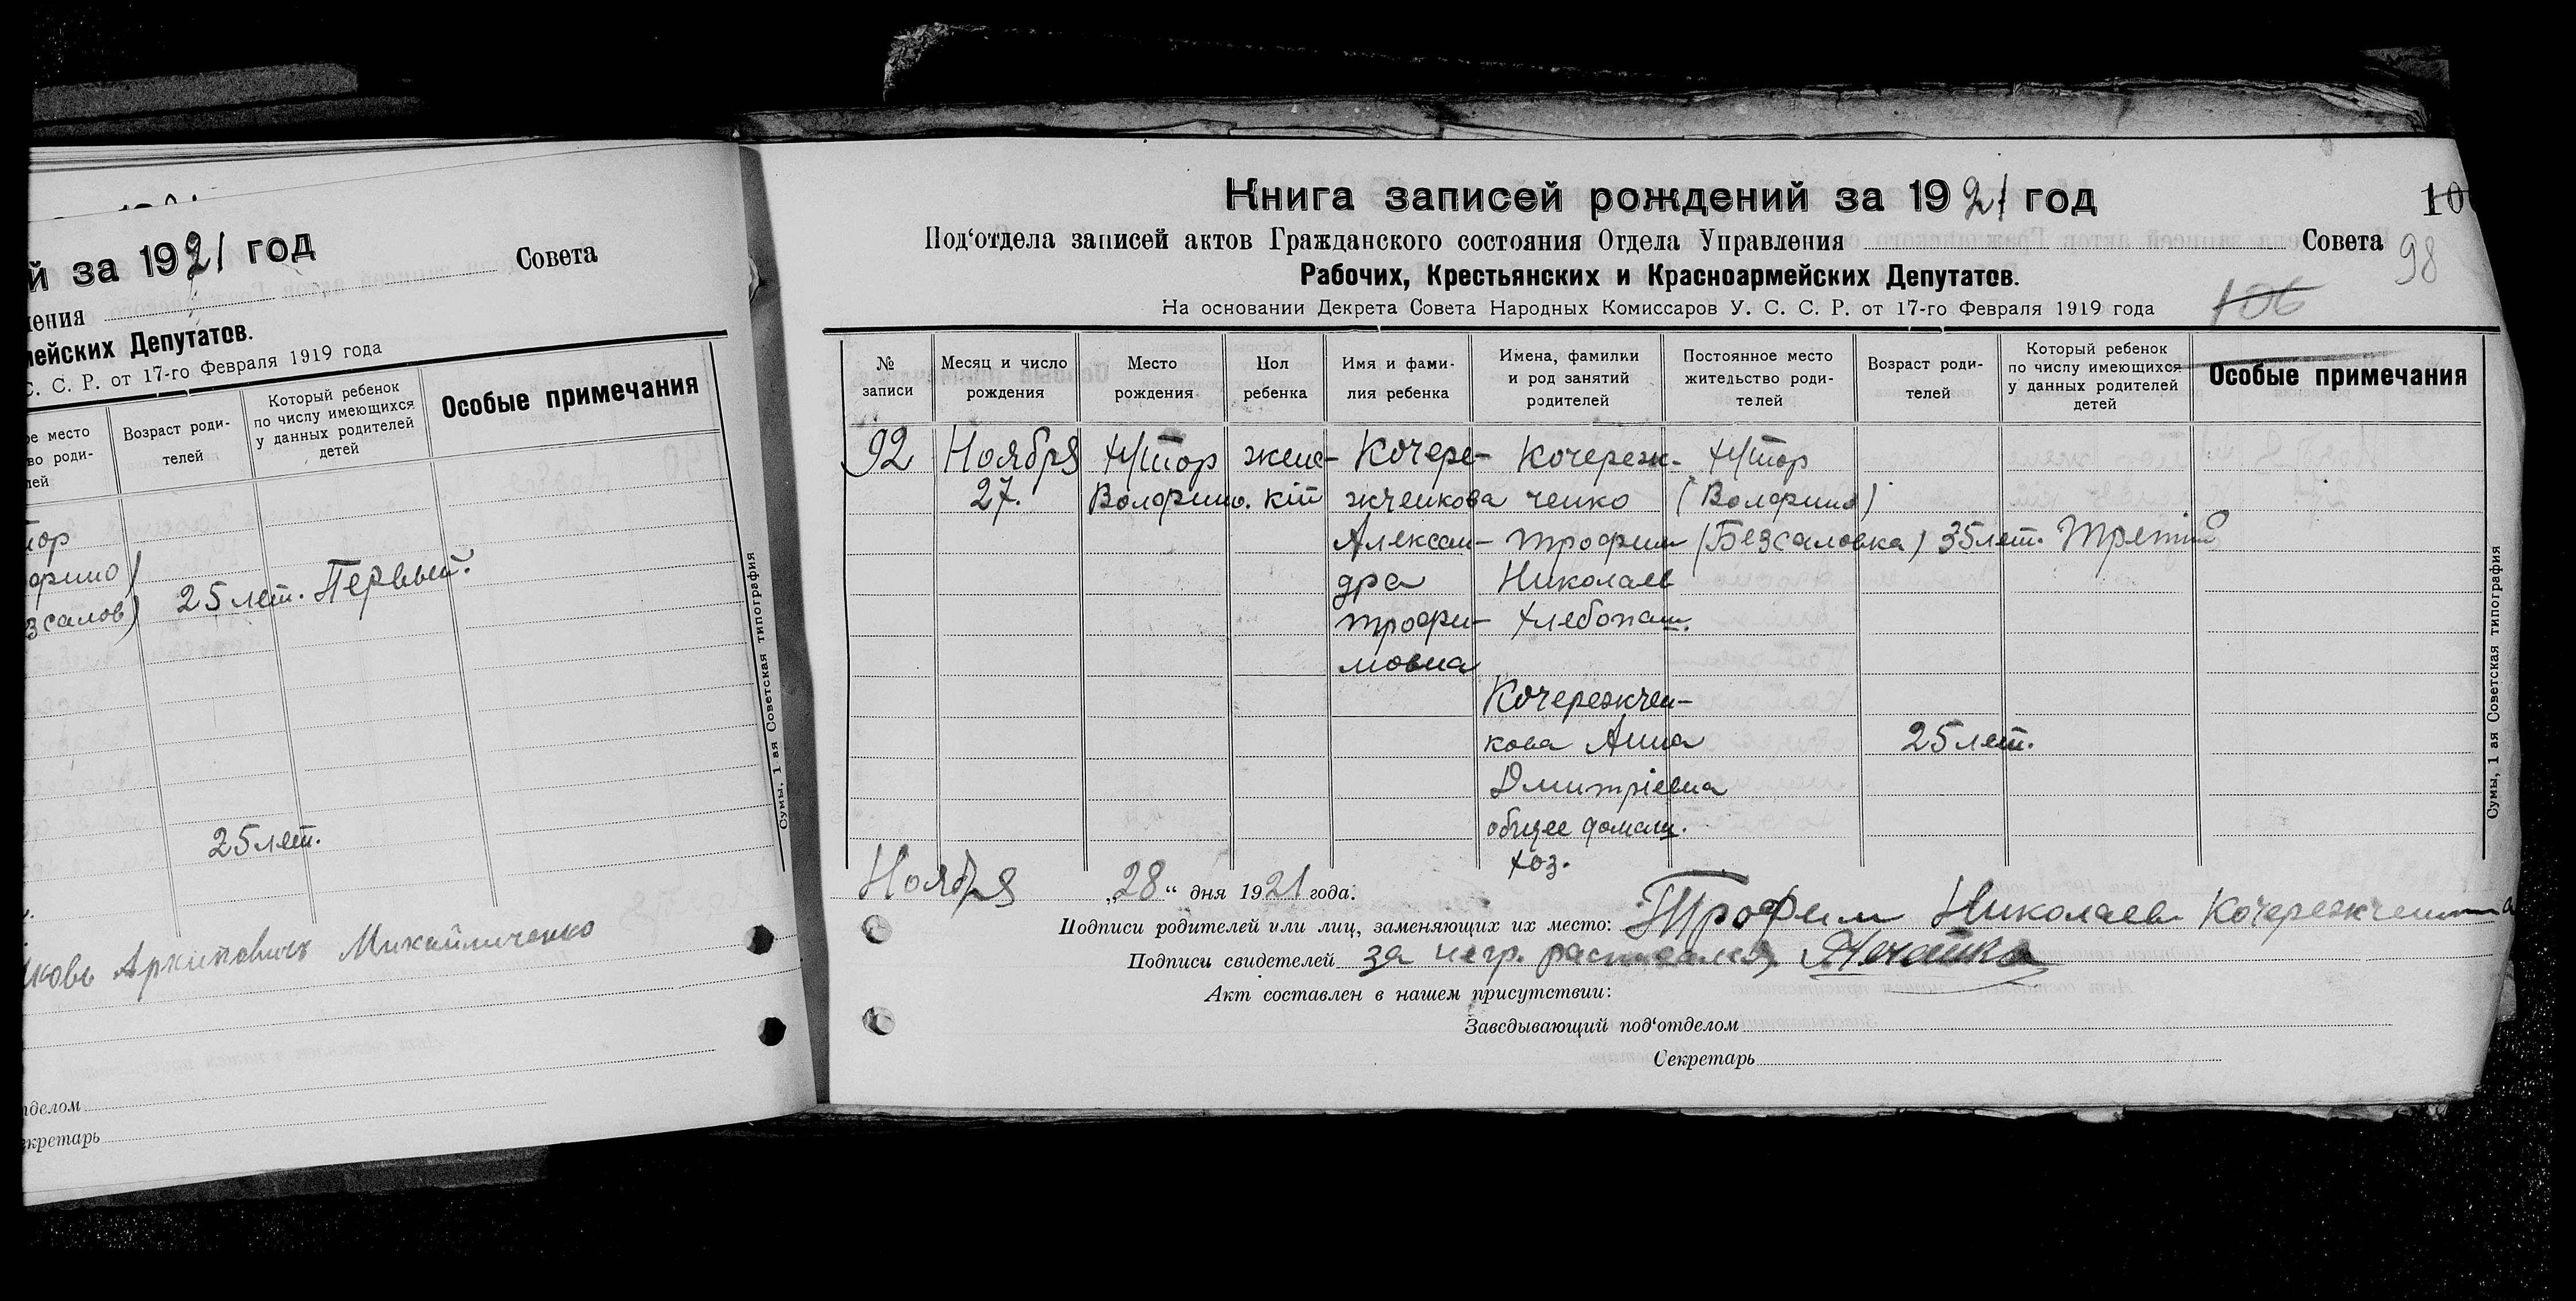 й за 1921 год
ления Совета
мейских Депутатов.
С. С. Р. от 17-го Февраля 1919 года
ое место
во роди-
лей
Возраст роди-
телей
Который ребенок
по числу имеющихся
у данных родителей
детей
Особые примечания
тор
орино)
зсалов) 25 лет. Первый.
25 лет.
ковъ Архиповичъ Михайличенко
тделом
екретарь
Сумы, 1 ая Советская типография
Книга записей рождений за 1921 год
10
Под‘отдела записей актов Гражданского состояния Отдела Управления Совета
98
Рабочих, Крестьянских и Красноармейских Депутатов.
На основании Декрета Совета Народных Комиссаров У. С. С. Р. от 17-го Февраля 1919 года
106
№
записи
Месяц и число
рождения
Место
рождения
Пол
ребенка
Имя и фами-
лия ребенка
Имена, фамилии
и род занятий
родителей
Постоянное место
жительство роди-
телей
Возраст роди-
телей
Который ребенок
по числу имеющихся
у данных родителей
детей
Особые примечания
92 Ноября Х/тор женс- Кочере- Кочереж- Х/тор
27. Волфино. кій жченкова ченко (Волфино)
Алексан- Трофим (Безсаловка) 35 лет. Третій
дра Николаев
Трофи- Хлебопаш.
мовна
Кочережчен-
кова Анна 25 лет.
Дмитріевна
общее домаш.
хоз.
Ноября „28“ дня 1921 года.
Подписи родителей или лиц, заменяющих их место: Трофим Николаев Кочережченко
Подписи свидетелей за негр. расписался
Акт составлен в нашем присутствии:
Заведывающий под‘отделом
Секретарь
Сумы, 1 ая Советская типография